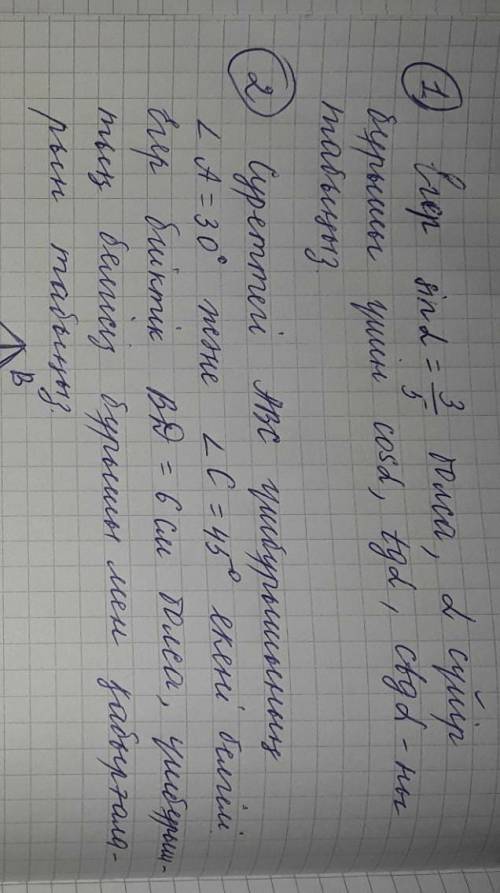 1) Егер sin α = 3/5 болса, α сүйір
бұрышы үшін cosα, tgα, ctgα - ны
табыңыз.
2) Суреттегі АВС үшбұрышының
∠A = 30° және ∠C = 45° екені белгілі.
Егер биіктік BD = 6 см болса, үшбұрыш-
тың белгісіз бұрышы мен қабырғала-
рын табыңыз.
B